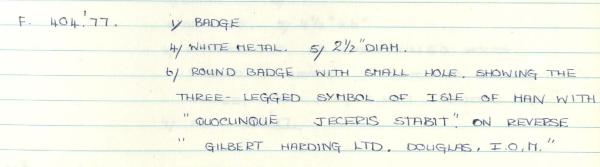 F. 404.'77. 1/ BADGE
4/ WHITE METAL. 5/ 2½" DIAM.
6/ ROUND BADGE WITH SMALL HOLE, SHOWING THE
THREE-LEGGED SYMBOL OF ISLE OF MAN WITH
"QUOCUNQUE JECERIS STABIT." ON REVERSE
"GILBERT HARDING LTD, DOUGLAS, I.O.M."